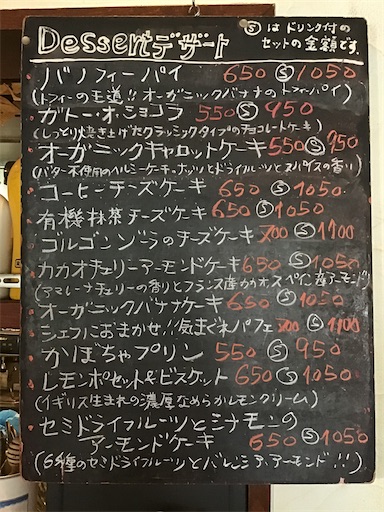 Dessert デザート
Ⓢ は ドリンク付の
セットの金額です。
バノフィーパイ 650 Ⓢ 1050
(トフィーの王道!! オーガニックバナナのトフィーパイ)
ガトー・オ・ショコラ 550 Ⓢ 950
(しっとり焼き上げたクラシックタイプのチョコレートケーキ)
オーガニックキャロットケーキ 550 Ⓢ 950
(バター不使用のヘルシーケーキ、ナッツとドライフルーツとスパイスの香り)
コーヒーチーズケーキ 650 Ⓢ 1050
有機抹茶チーズケーキ 650 Ⓢ 1050
ゴルゴンゾラのチーズケーキ 700 Ⓢ 1100
カカオチェリーアーモンドケーキ 650 Ⓢ 1050
(アマレーナチェリーの香りとフランス産カカオ、スペイン産アーモンド)
オーガニックバナナケーキ 650 Ⓢ 1050
シェフにおまかせ!! 気まぐれパフェ 700 Ⓢ 1100
かぼちゃプリン 550 Ⓢ 950
レモンポセット&ビスケット 650 Ⓢ 1050
(イギリス生まれの濃厚なめらかレモンクリーム)
セミドライフルーツとシナモンの
アーモンドケーキ 650 Ⓢ 1050
(6種のセミドライフルーツとバレンシアアーモンド!!)